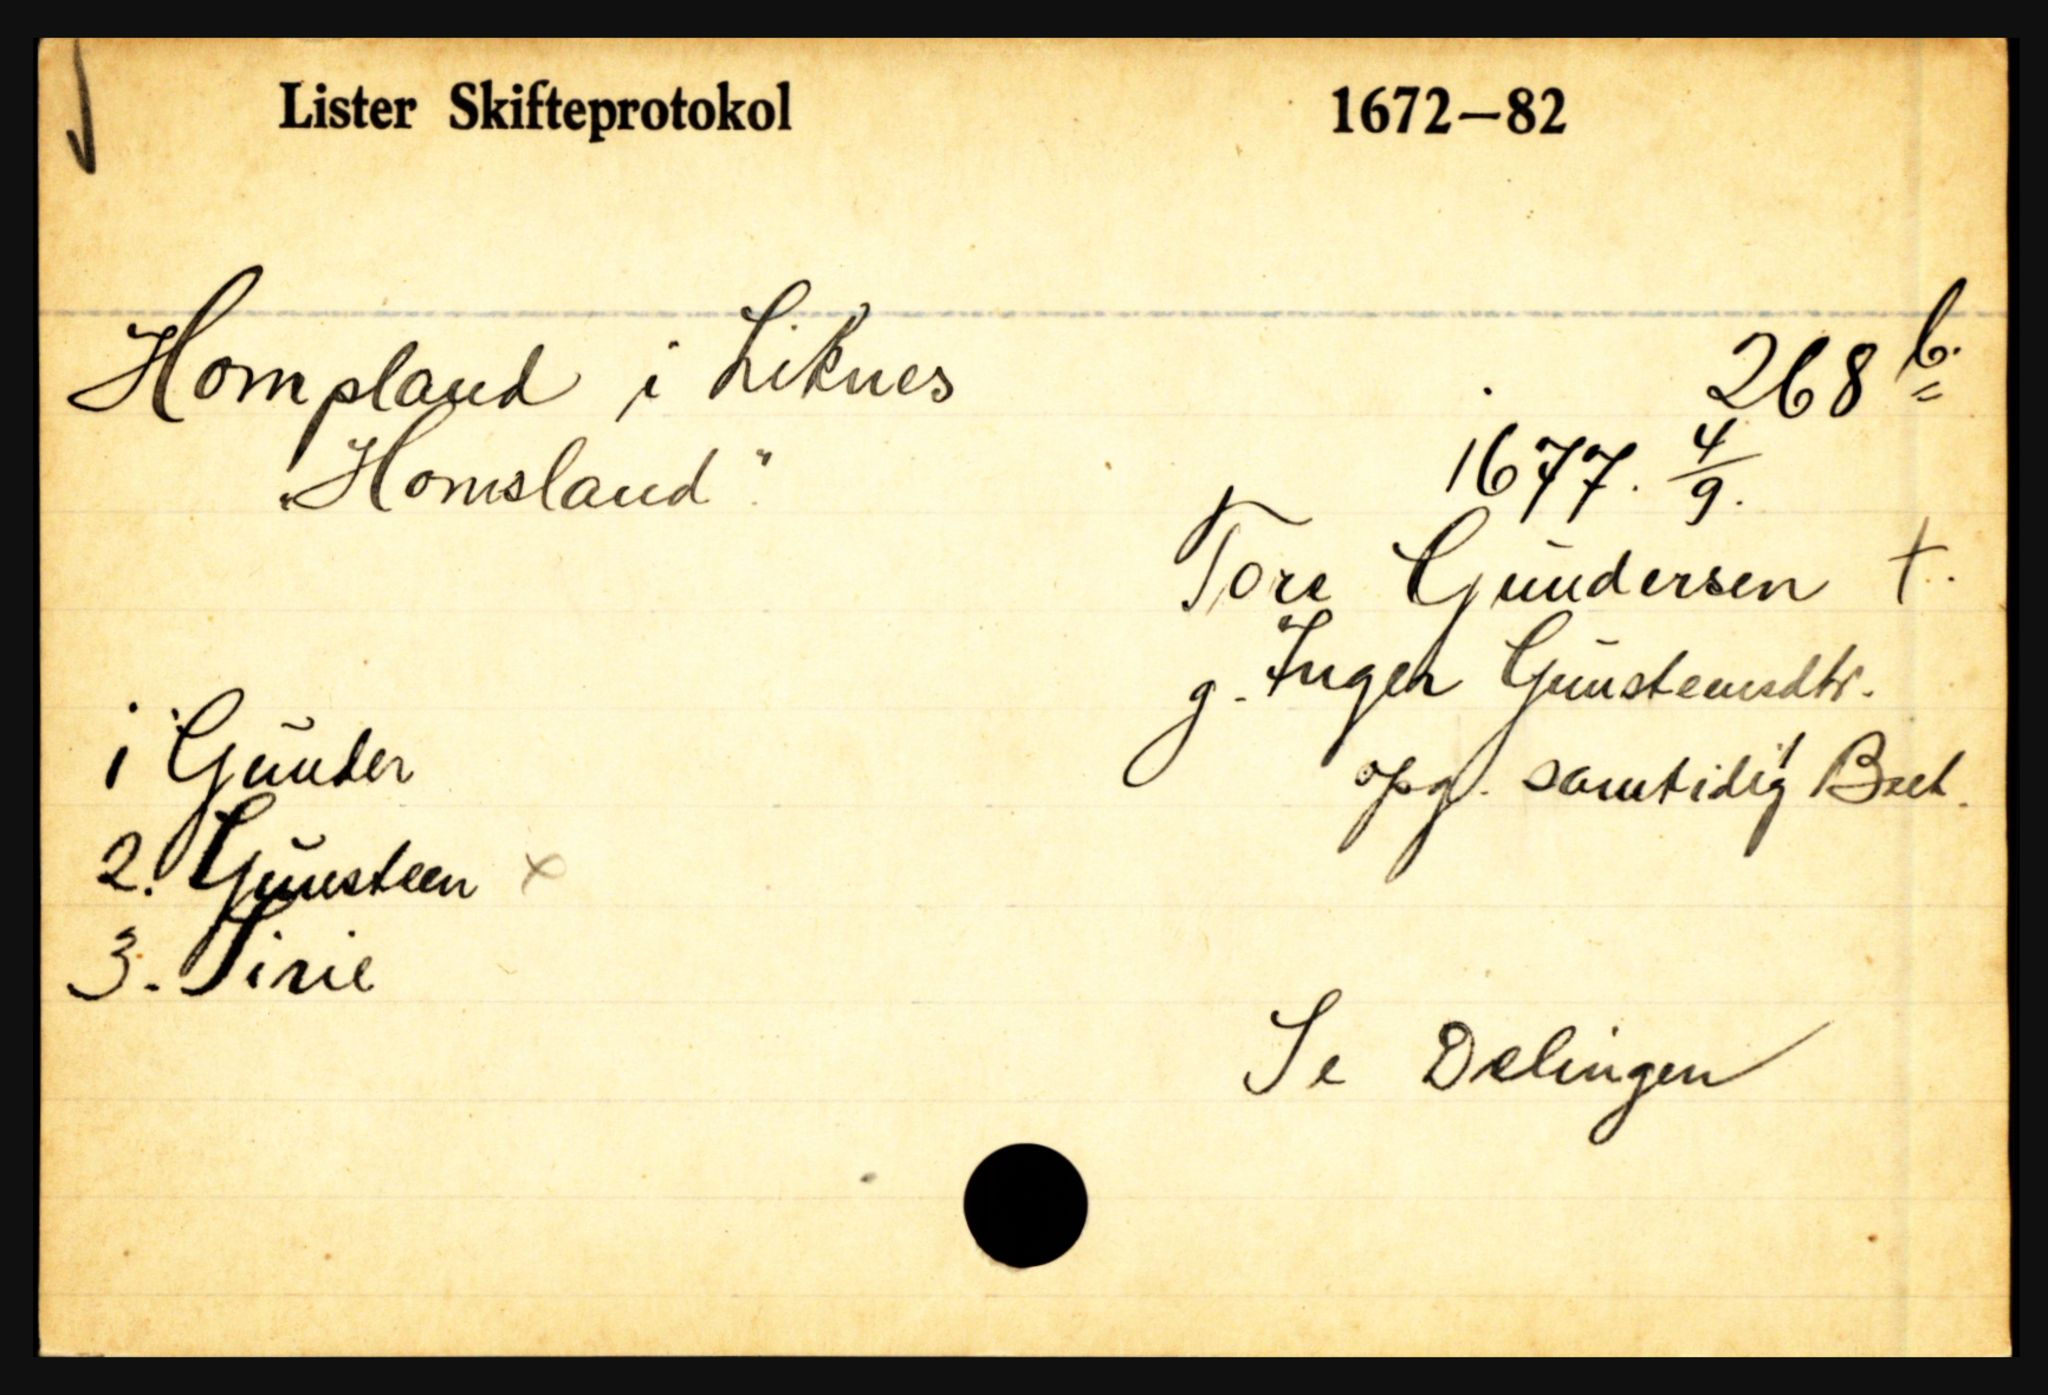 Lister Skifteprotokol 1672–82
Hompland i Liknes 268 b.
„Homsland" 1677. 4/9.
Tore Gundersen †.
g. Inger Gunsteensdtr.
opg. samtidig
1 Gunder
2. Gunsteen x
3. Sirie
Se Delingen